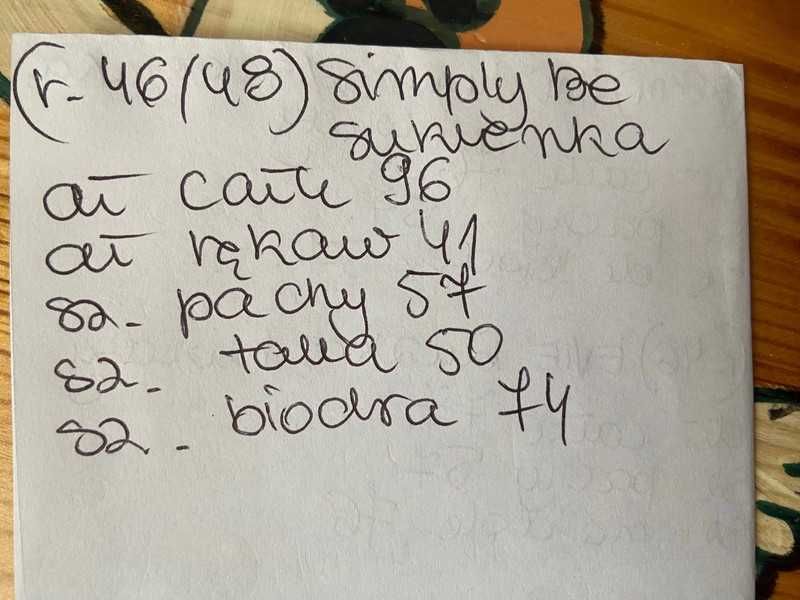 (r. 46/48) simply be
sukienka
dł całk 96
dł rękaw 41
sz. pachy 57
sz. talia 50
sz. biodra 74